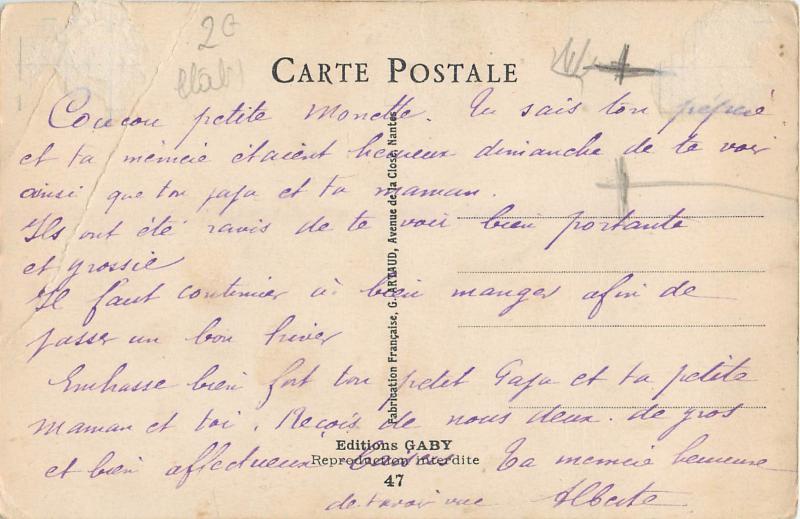 2€
CARTE POSTALE
Coucou petite Monette. Tu sais ton pépié
et ta mémée étaient heureux dimanche de te voir
ainsi que ton papa et ta maman.
Ils ont été ravis de te voir bien portante
et grossie
Il faut continuer à bien manger afin de
passer un bon hiver
Embrasse bien fort ton petit Papa et ta petite
maman et toi. Reçois de nous deux de gros
et bien affectueux baisers Ta mémée heureuse
de t'avoir vue Alberte
Fabrication Française, G. ARTAUD, Avenue de la Close, Nantes
Editions GABY
Reproduction interdite
47